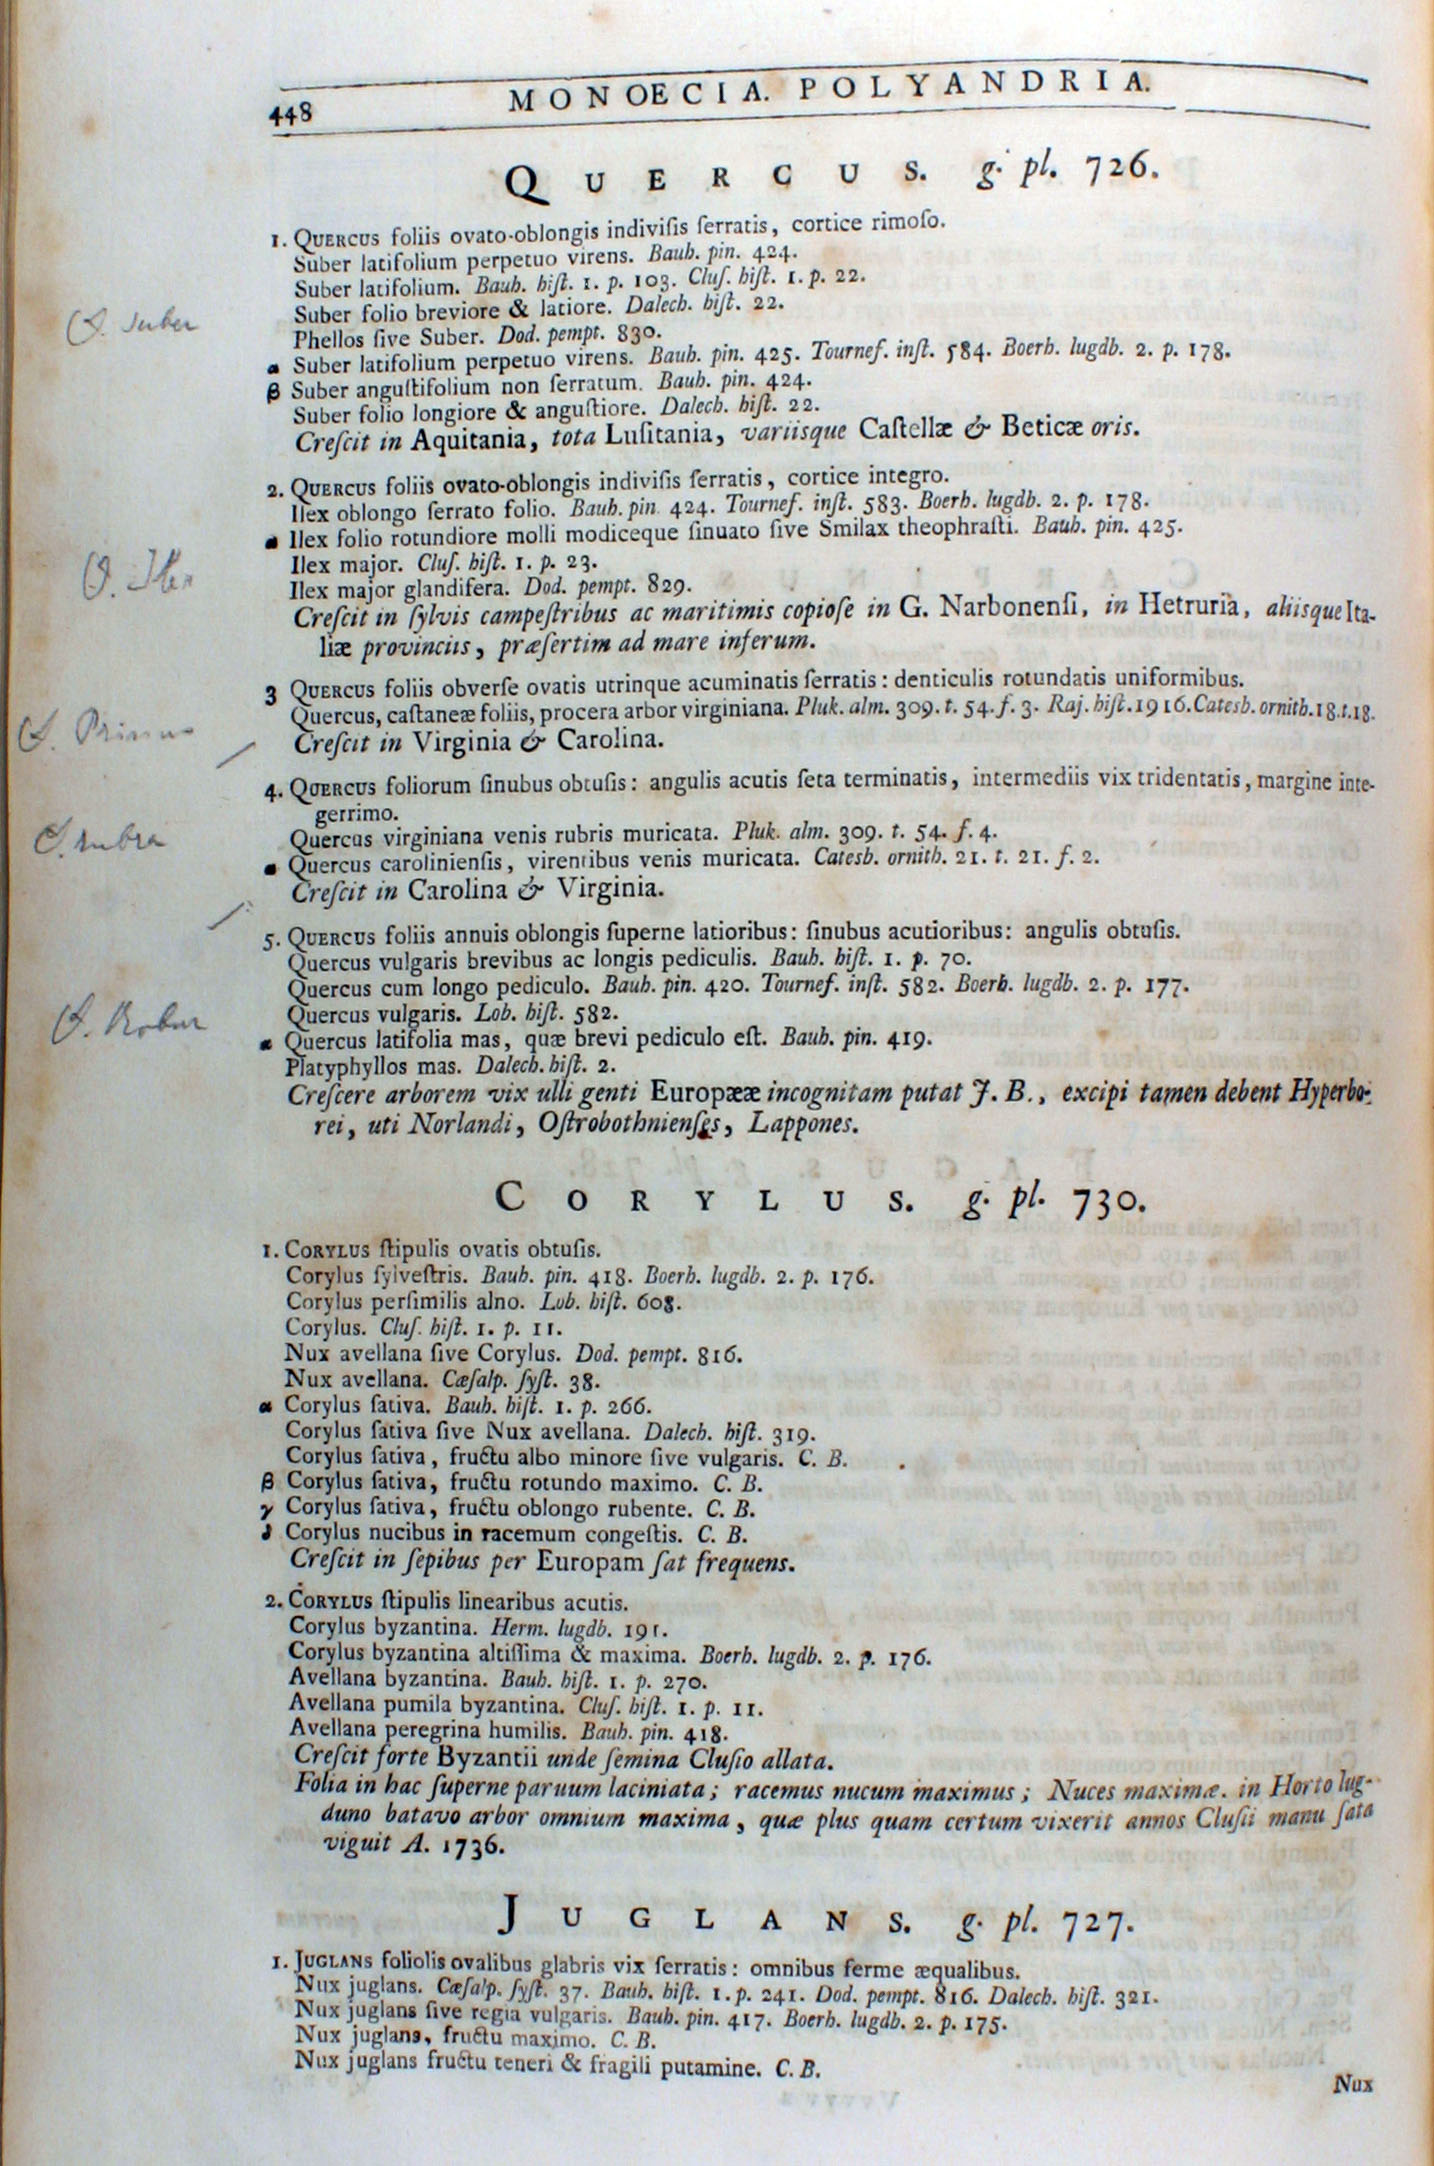 448
MONOECIA. POLYANDRIA.
QUERCUS. g. pl. 726.
1. QUERCUS foliis ovato-oblongis indivisis ſerratis, cortice rimoſo.
Suber latifolium perpetuo virens. Bauh. pin. 424.
Suber latifolium. Bauh. hiſt. 1. p. 103. Cluſ. hiſt. 1. p. 22.
Suber folio breviore & latiore. Dalech. hiſt. 22.
Q. Suber
Phellos ſive Suber. Dod. pempt. 830.
α Suber latifolium perpetuo virens. Bauh. pin. 425. Tournef. inſt. 584. Boerh. lugdb. 2. p. 178.
β Suber anguſtifolium non ſerratum. Bauh. pin. 424.
Suber folio longiore & anguſtiore. Dalech. hiſt. 22.
Creſcit in Aquitania, tota Luſitania, variisque Caſtellæ & Beticæ oris.
2. QUERCUS foliis ovato-oblongis indiviſis ſerratis, cortice integro.
Ilex oblongo ſerrato folio. Bauh. pin. 424. Tournef. inſt. 583. Boerh. lugdb. 2. p. 178.
α Ilex folio rotundiore molli modiceque ſinuato ſive Smilax theophraſti. Bauh. pin. 425.
Ilex major. Cluſ. hiſt. 1. p. 23.
Q. Ilex
Ilex major glandifera. Dod. pempt. 829.
Creſcit in ſylvis campeſtribus ac maritimis copioſe in G. Narbonenſi, in Hetruria, aliisque Ita-
liæ provinciis, præſertim ad mare inferum.
3 QUERCUS foliis obverſe ovatis utrinque acuminatis ſerratis: denticulis rotundatis uniformibus.
Quercus, caſtaneæ foliis, procera arbor virginiana. Pluk. alm. 309. t. 54. f. 3. Raj. hiſt. 1916. Catesb. ornith. 18. t. 18.
Q. Prinus
Creſcit in Virginia & Carolina.
4. QUERCUS foliorum ſinubus obtuſis: angulis acutis ſeta terminatis, intermediis vix tridentatis, margine inte-
gerrimo.
Quercus virginiana venis rubris muricata. Pluk. alm. 309. t. 54. f. 4.
Q. rubra
α Quercus carolinienſis, virentibus venis muricata. Catesb. ornith. 21. t. 21. f. 2.
Creſcit in Carolina & Virginia.
5. QUERCUS foliis annuis oblongis ſuperne latioribus: ſinubus acutioribus: angulis obtuſis.
Quercus vulgaris brevibus ac longis pediculis. Bauh. hiſt. 1. p. 70.
Quercus cum longo pediculo. Bauh. pin. 420. Tournef. inſt. 582. Boerh. lugdb. 2. p. 177.
Quercus vulgaris. Lob. hiſt. 582.
Q. Robur
α Quercus latifolia mas, quæ brevi pediculo eſt. Bauh. pin. 419.
Platyphyllos mas. Dalech. hiſt. 2.
Creſcere arborem vix ulli genti Europææ incognitam putat J. B., excipi tamen debent Hyperbo-
rei, uti Norlandi, Oſtrobothnienſes, Lappones.
CORYLUS. g. pl. 730.
1. CORYLUS ſtipulis ovatis obtuſis.
Corylus ſylveſtris. Bauh. pin. 418. Boerh. lugdb. 2. p. 176.
Corylus perſimilis alno. Lob. hiſt. 608.
Corylus. Cluſ. hiſt. 1. p. 11.
Nux avellana ſive Corylus. Dod. pempt. 816.
Nux avellana. Cæſalp. ſyſt. 38.
α Corylus ſativa. Bauh. hiſt. 1. p. 266.
Corylus ſativa ſive Nux avellana. Dalech. hiſt. 319.
Corylus ſativa, fructu albo minore ſive vulgaris. C. B.
β Corylus ſativa, fructu rotundo maximo. C. B.
γ Corylus ſativa, fructu oblongo rubente. C. B.
δ Corylus nucibus in racemum congeſtis. C. B.
Creſcit in ſepibus per Europam ſat frequens.
2. CORYLUS ſtipulis linearibus acutis.
Corylus byzantina. Herm. lugdb. 191.
Corylus byzantina altiſſima & maxima. Boerh. lugdb. 2. p. 176.
Avellana byzantina. Bauh. hiſt. 1. p. 270.
Avellana pumila byzantina. Cluſ. hiſt. 1. p. 11.
Avellana peregrina humilis. Bauh. pin. 418.
Creſcit forte Byzantii unde ſemina Cluſio allata.
Folia in hac ſuperne paruum laciniata; racemus nucum maximus; Nuces maximæ. in Horto lug-
duno batavo arbor omnium maxima, quæ plus quam certum vixerit annos Cluſii manu ſata
viguit A. 1736.
JUGLANS. g. pl. 727.
1. JUGLANS foliolis ovalibus glabris vix ſerratis: omnibus ferme æqualibus.
Nux juglans. Cæſalp. ſyſt. 37. Bauh. hiſt. 1. p. 241. Dod. pempt. 816. Dalech. hiſt. 321.
Nux juglans ſive regia vulgaris. Bauh. pin. 417. Boerh. lugdb. 2. p. 175.
Nux juglans, fructu maximo. C. B.
Nux juglans fructu teneri & fragili putamine. C. B.
Nux